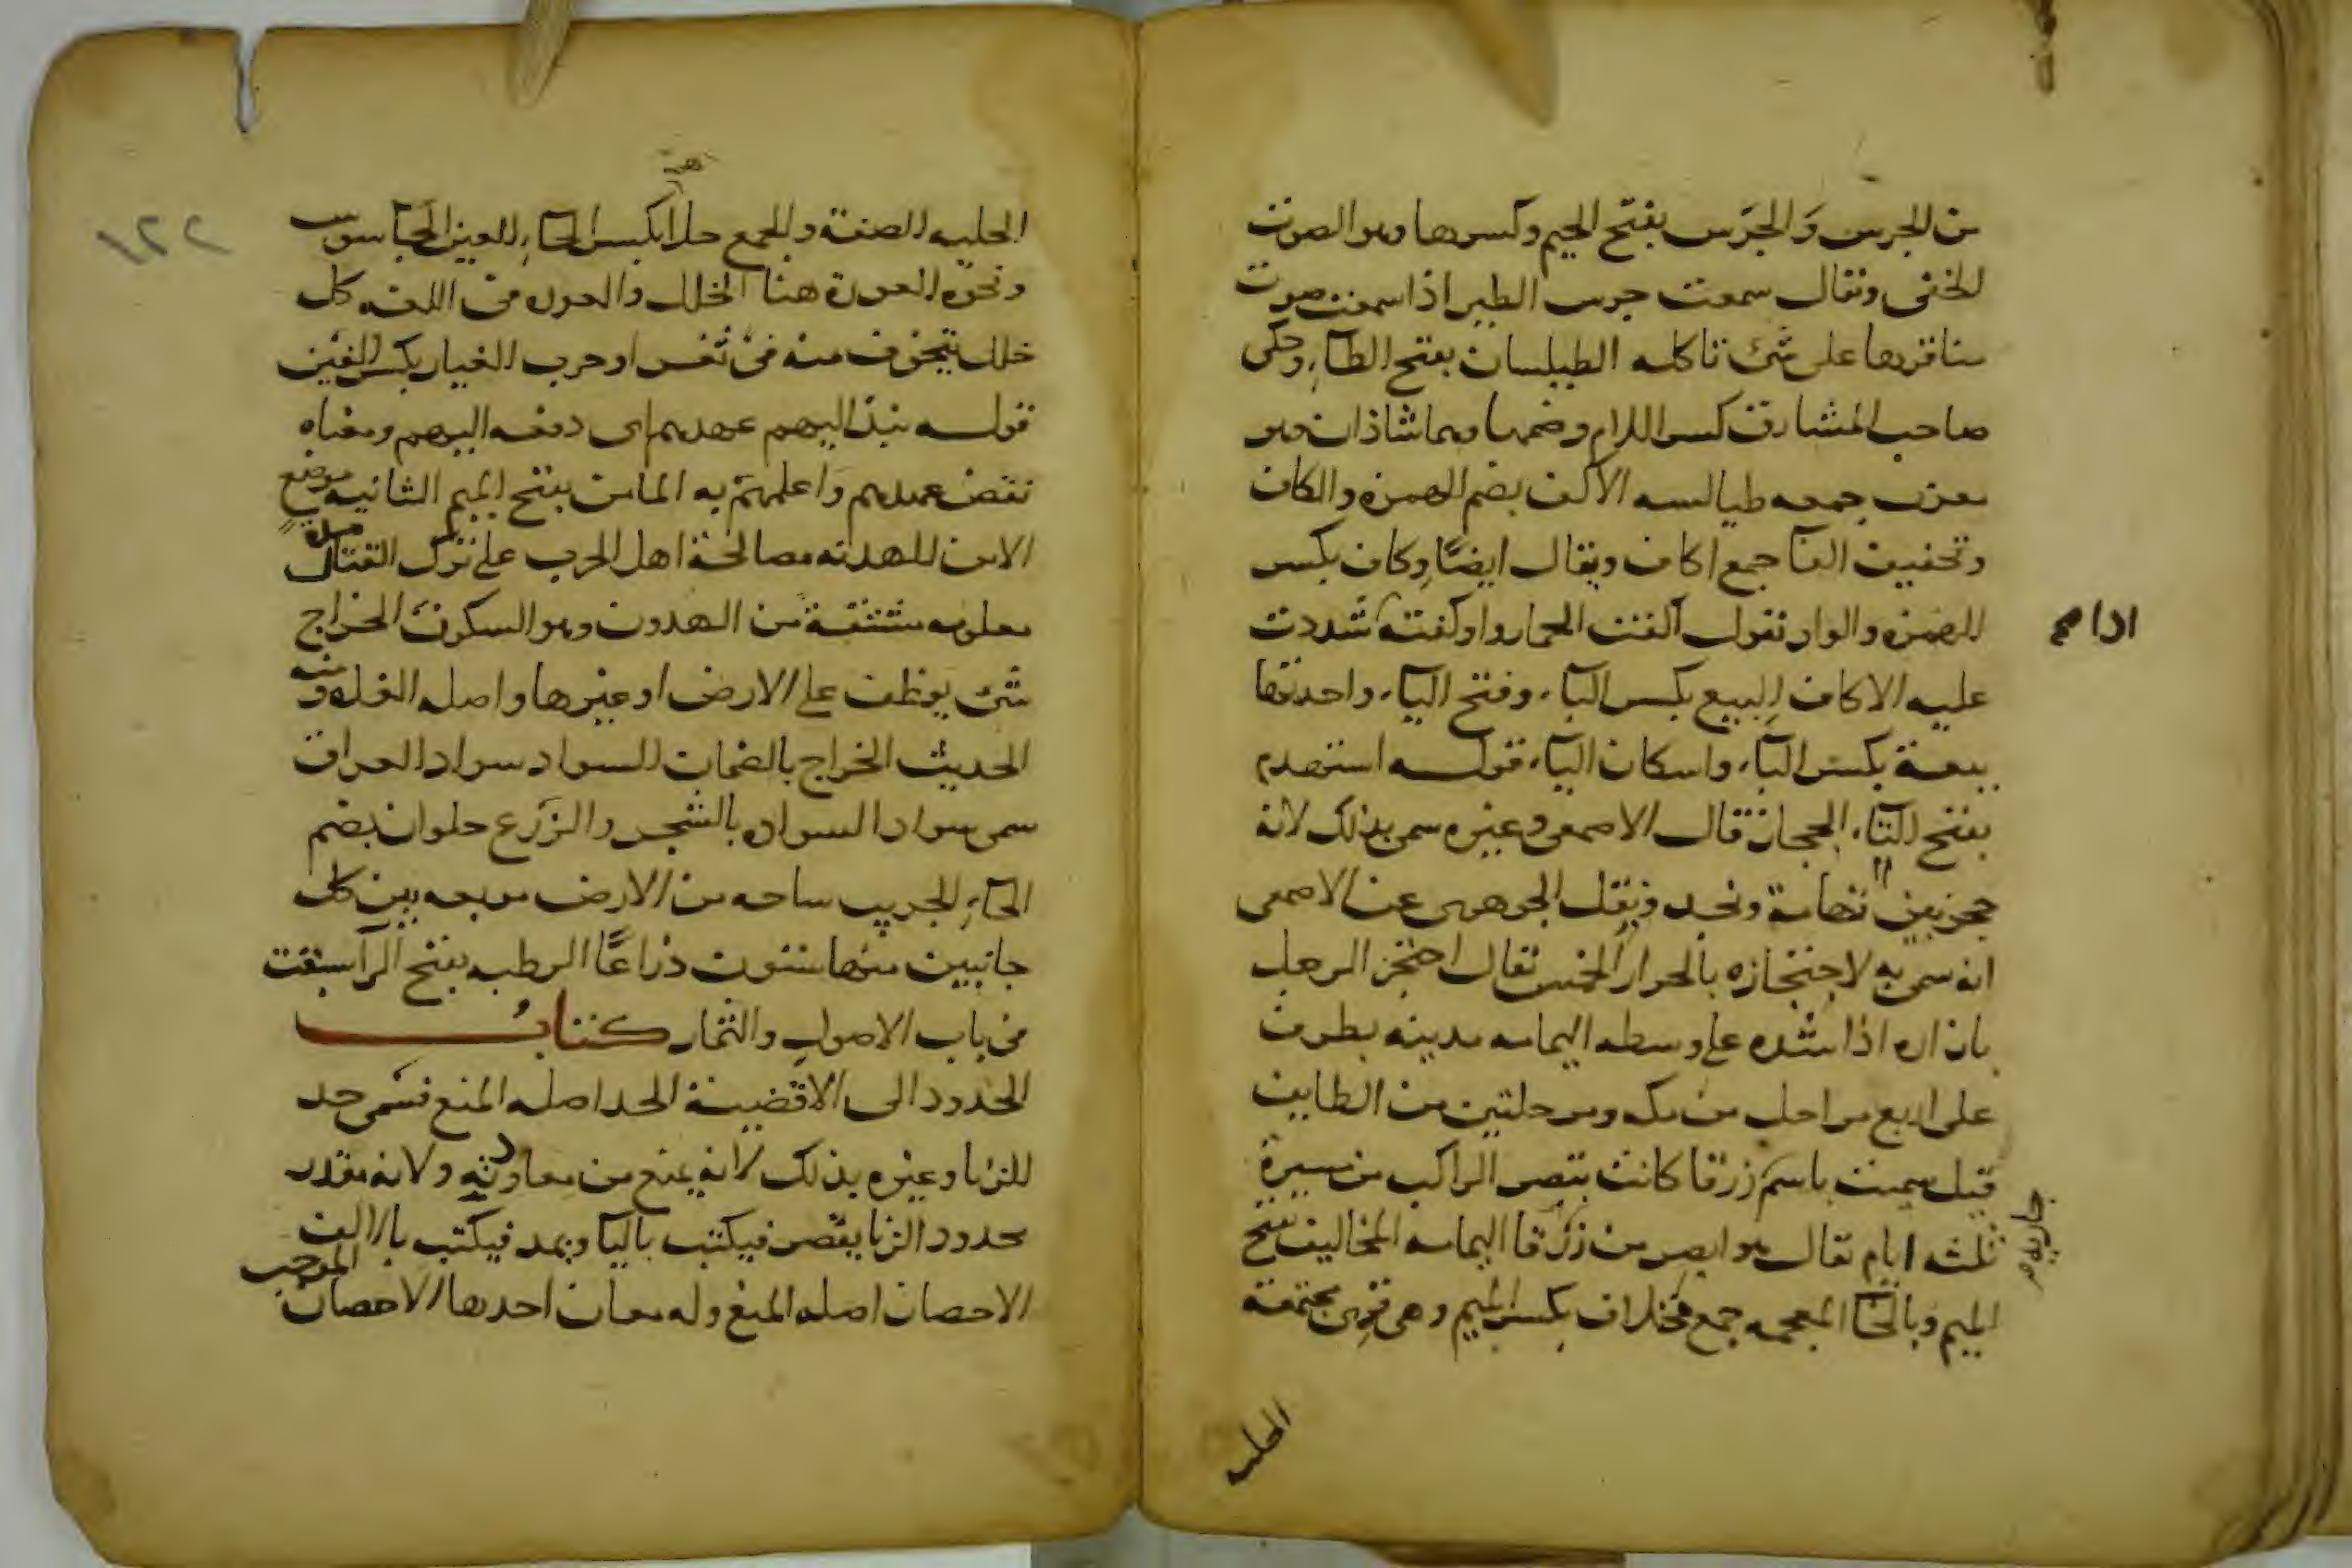 من الجرس وَالجَرَس بفتح الجيم وكسرها وهو الصوت
الخفى ويقال سمعت جرس الطير اذا سمعت صوت
مناقرها على شئ تاكله الطيلسان بفتح الطآءِ وحكى
صاحب المشارق كسر اللام وضمها وهما شاذان وهو
معرب جمعه طيالسه الاكف بضم الهمزه والكاف
وتخفيف الفآ جمع اكاف ويقال ايضًا وِكاف بكسر
الهمزه والواو تقول آكفت الحمار واوكفته شددت
عليه الاكاف البِيع بكسر البآء وفتح اليآء واحدتها
بيعة بكسر البآء واسكان اليآء قوله استهدم
بفتح التآء الحجاز قال الاصمعى وغيره سمى بذلك لانه
حجز بين تهامة ونجد ونقل الجوهرى عن الاصمعى
انه سمى به لاحتجازه بالحرار الخمس يقال احتجز الرجل
بازاره اذا شده على وسطه اليمامه مدينه بطرف
على اربع مراحل من مكه ومرحلتين من الطايف
قيل سميت باسم زرقا كانت تبصر الراكب من مسيرة
ثلثه ايام يقال هو ابصر من زرقا اليمامه المخاليف بفتح
الميم وبالخآ المعجمه جمع مخلاف بكسر الميم وهى قرى مجتمعة
جاريه
الحليه
٢٢١
الحليه الصفة والجمع حلا بكسر الحآءِ العين الجاسوس
ونحوه العورة هنا الخلل والعوره فى اللغه كل
خلل يتخوف منه فى ثغر او حرب الغيار بكسر الغين
قوله نبذ اليهم عهدهم اى دفعه اليهم ومعناه
نقض عهدهم وَاعلمهم به المامن بفتح الميم الثانيه موضع
الامن الهدنه مصالحة اهل الحرب على ترك القتال مده
معلومه مشتقة من الهدون وهو السكون الخراج
شئ يوظف على الارض او غيرها واصله الغله ومنه
الحديث الخراج بالضمان السواد سواد العراق
سمى سوادا لسواده بالشجر والزَرع حلوان بضم
الحآءِ الجريب ساحه من الارض مربعه بين كل
جانبين منها ستون ذراعًا الرطبه بفتح الرآ سبقت
فى باب الاصول والثمار كتابُ
الحدود الى الاقضية الحد اصله المنع فسمى حد
الزنا وغيره بذلك لانه يمنع من معاودته ولانه مقدر
محدود الزنا يقصر فيكتب باليآ ويمد فيكتب بالالف
الاحصان اصله المنع وله معان احدها الاحصان الموجب